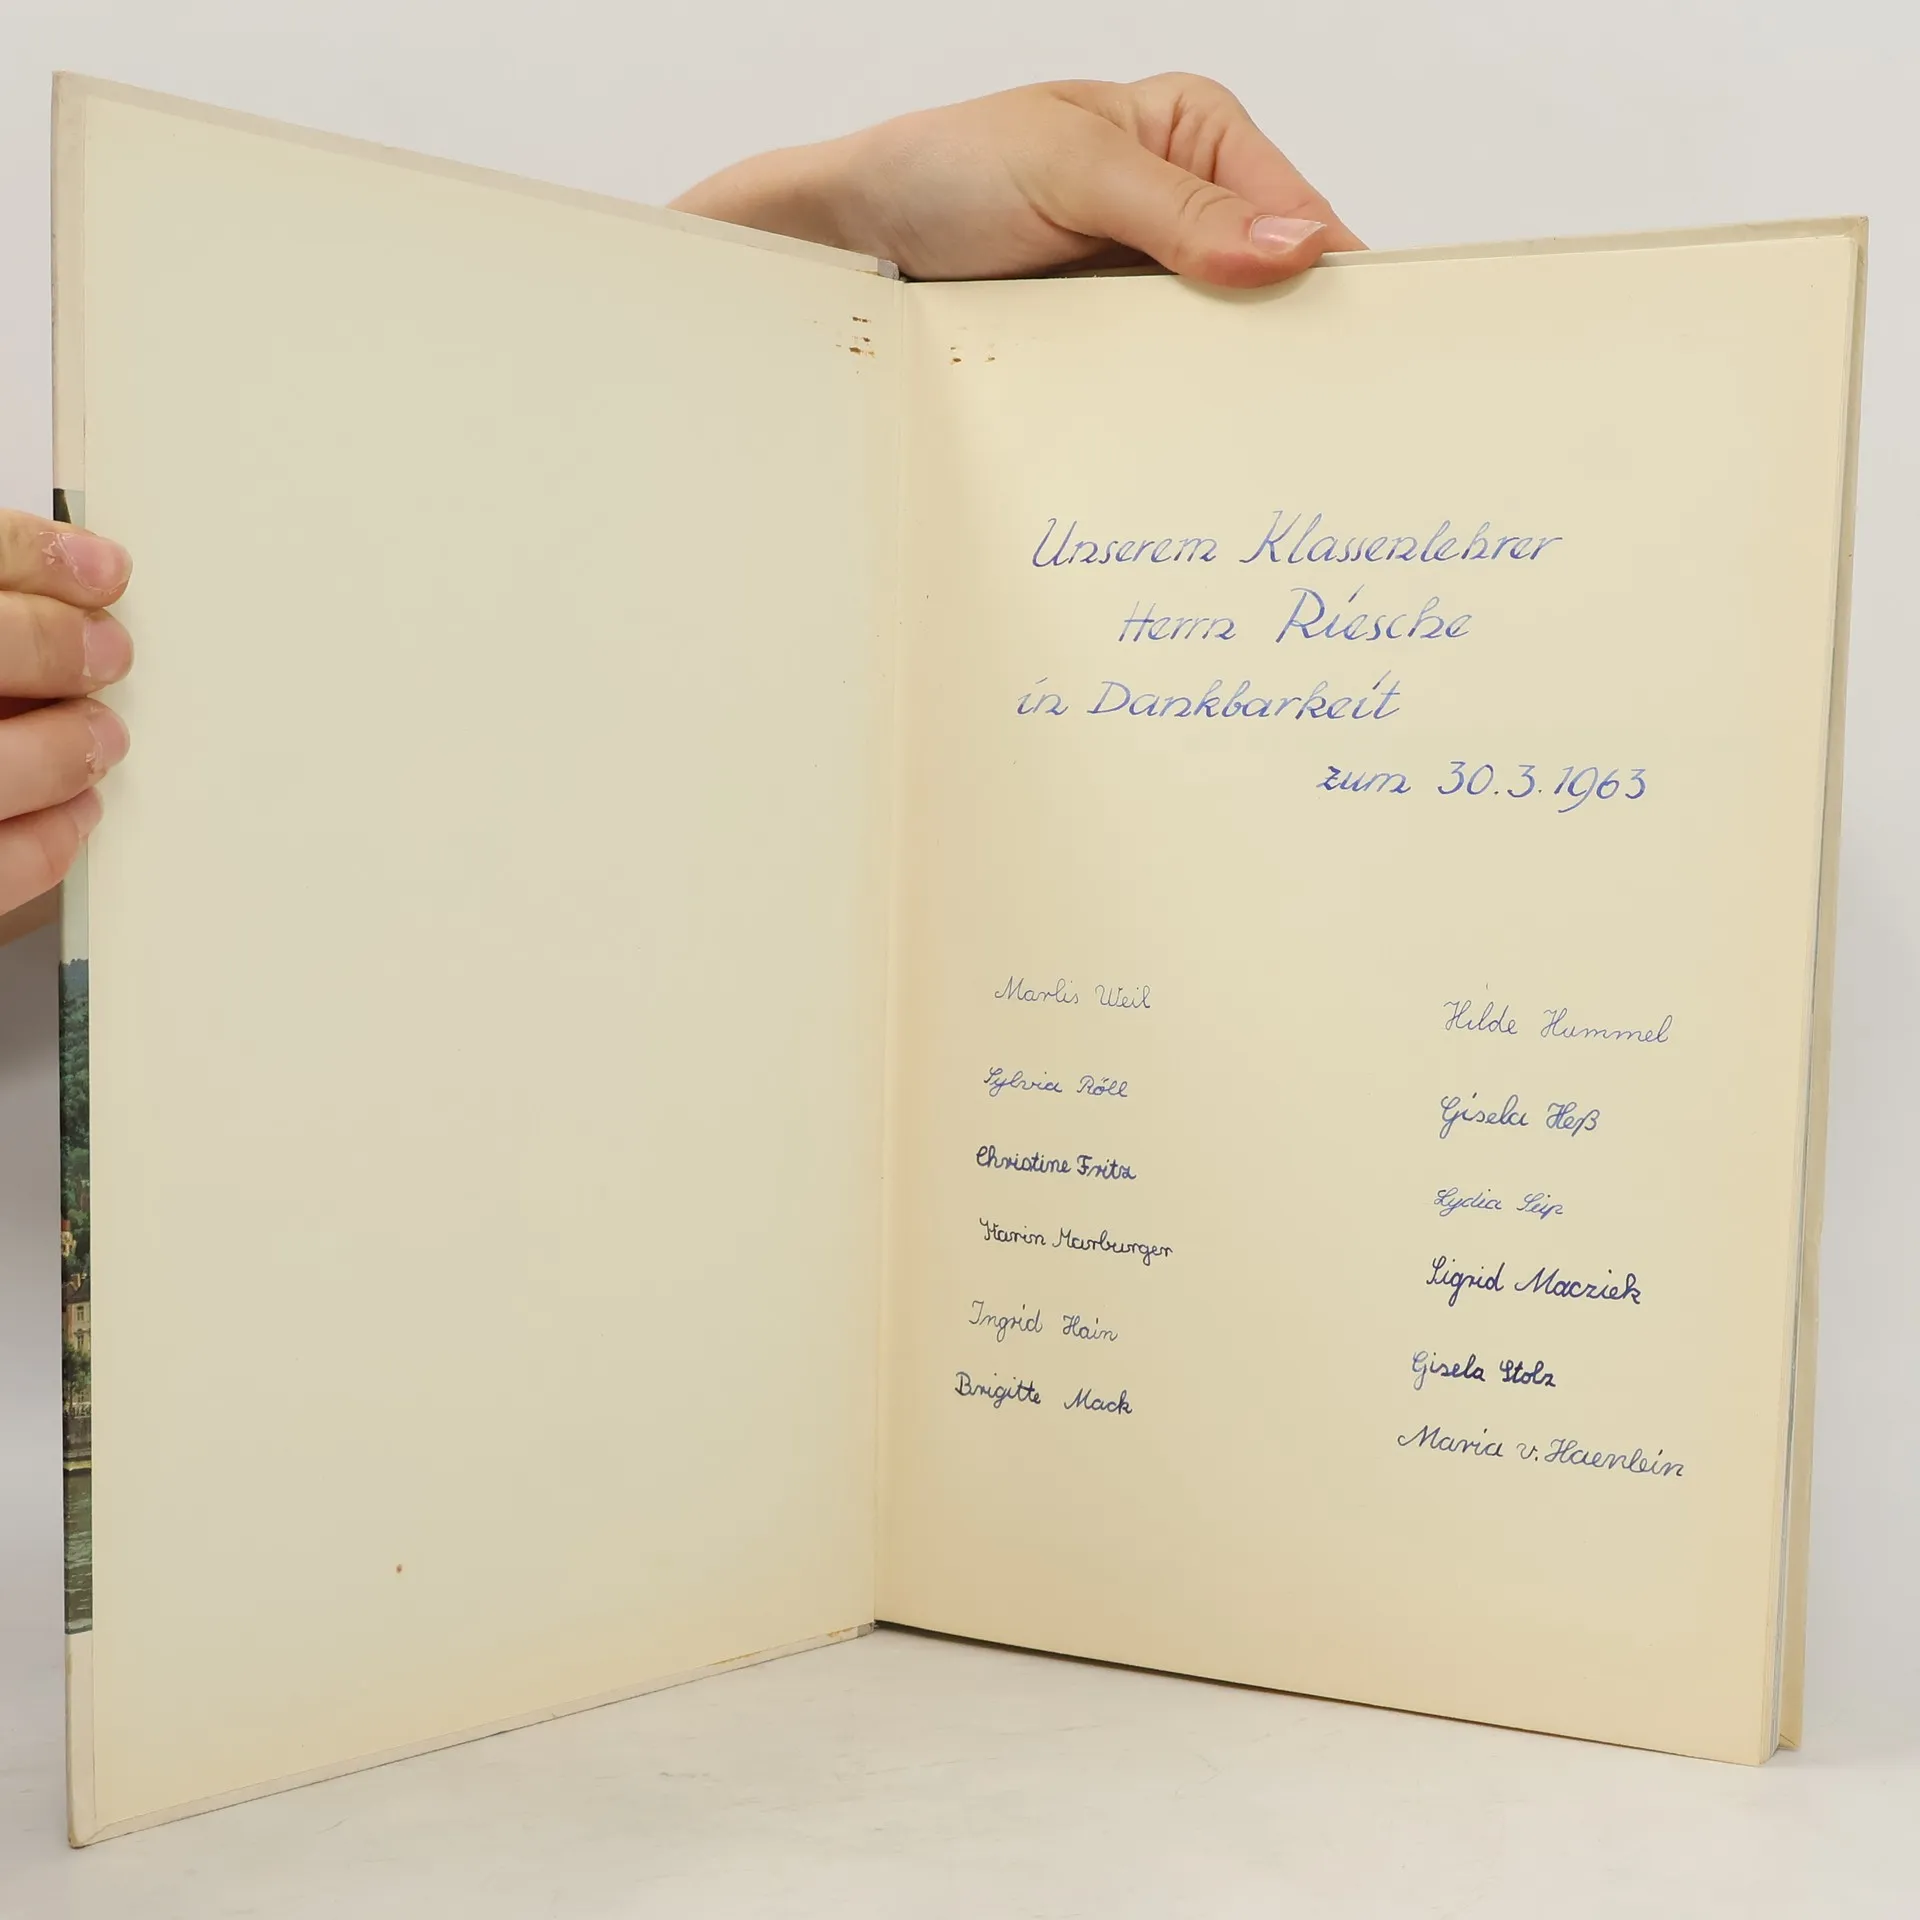 Unserem Klassenlehrer
Herrn Riesche
in Dankbarkeit
zum 30.3.1963
Marlis Weil
Sylvia Röll
Christine Fritz
Karin Marburger
Ingrid Hain
Brigitte Mack
Hilde Hummel
Gisela Heß
Lydia Seip
Sigrid Macziek
Gisela Stolz
Maria v. Haenlein